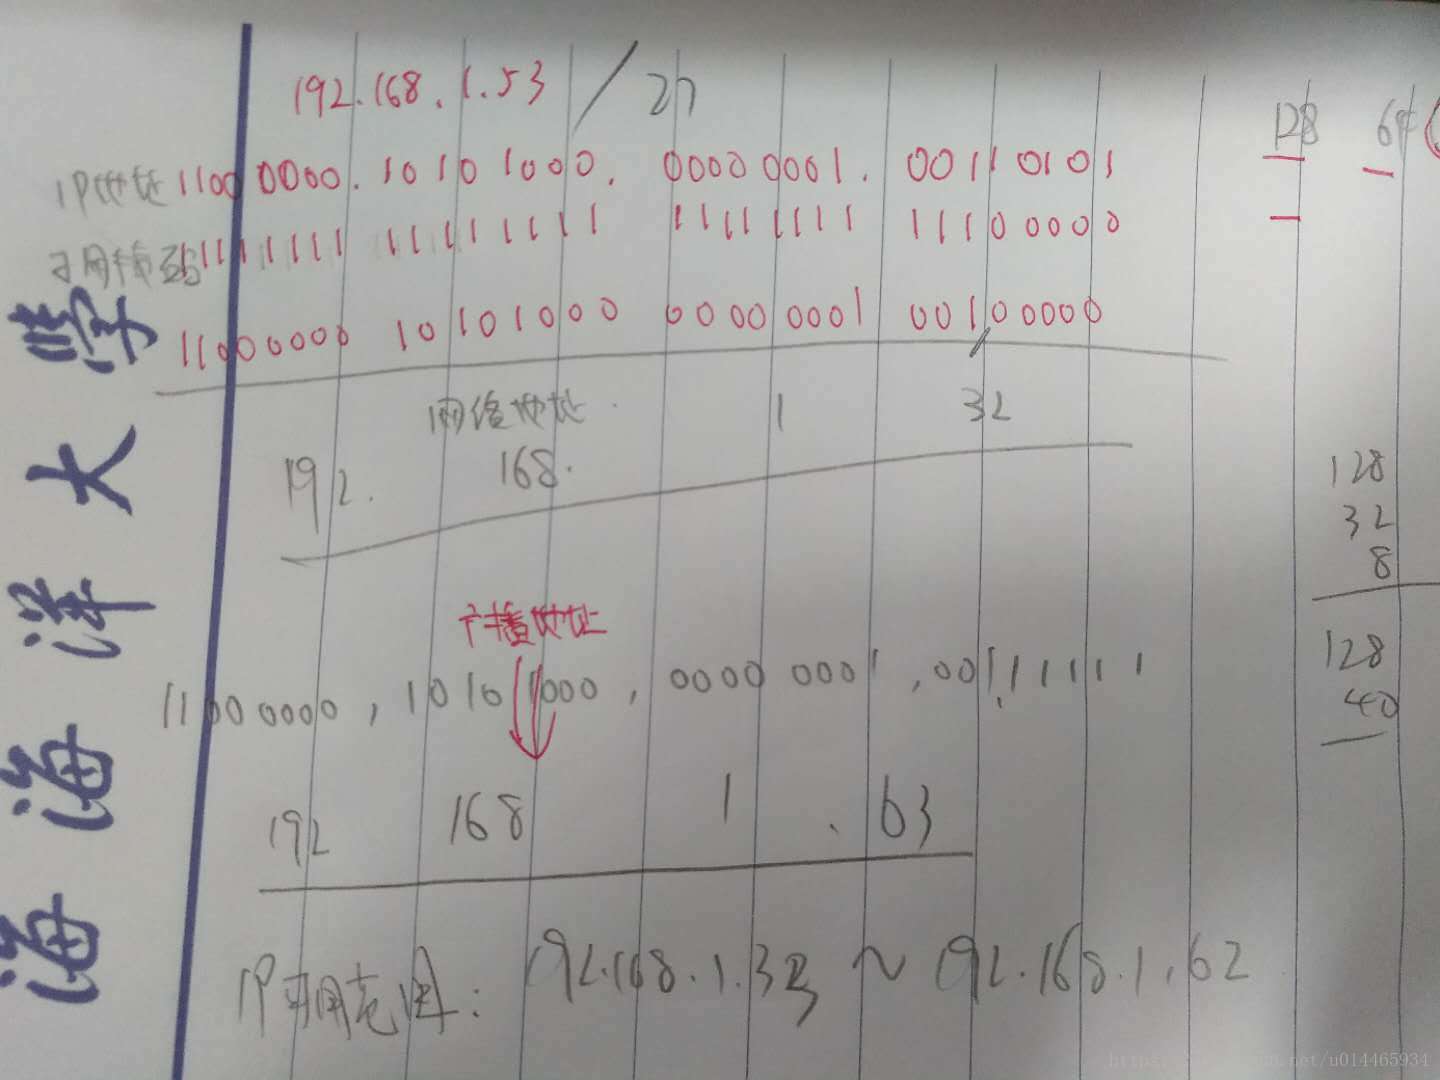 192.168.1.53 / 27
128 64
IP地址 1100 0000. 1010 1000. 0000 0001. 0011 0101
子网掩码 11111111 11111111 11111111 11100000
11000000 10101000 0000 0001 00100000
网络地址 1 32
192. 168.
128
32
8
广播地址
128
40
11000000, 10101000, 0000 0001, 00111111
192 168 1 . 63
IP可用范围: 192.168.1.33 ~ 192.168.1.62
海洋大学